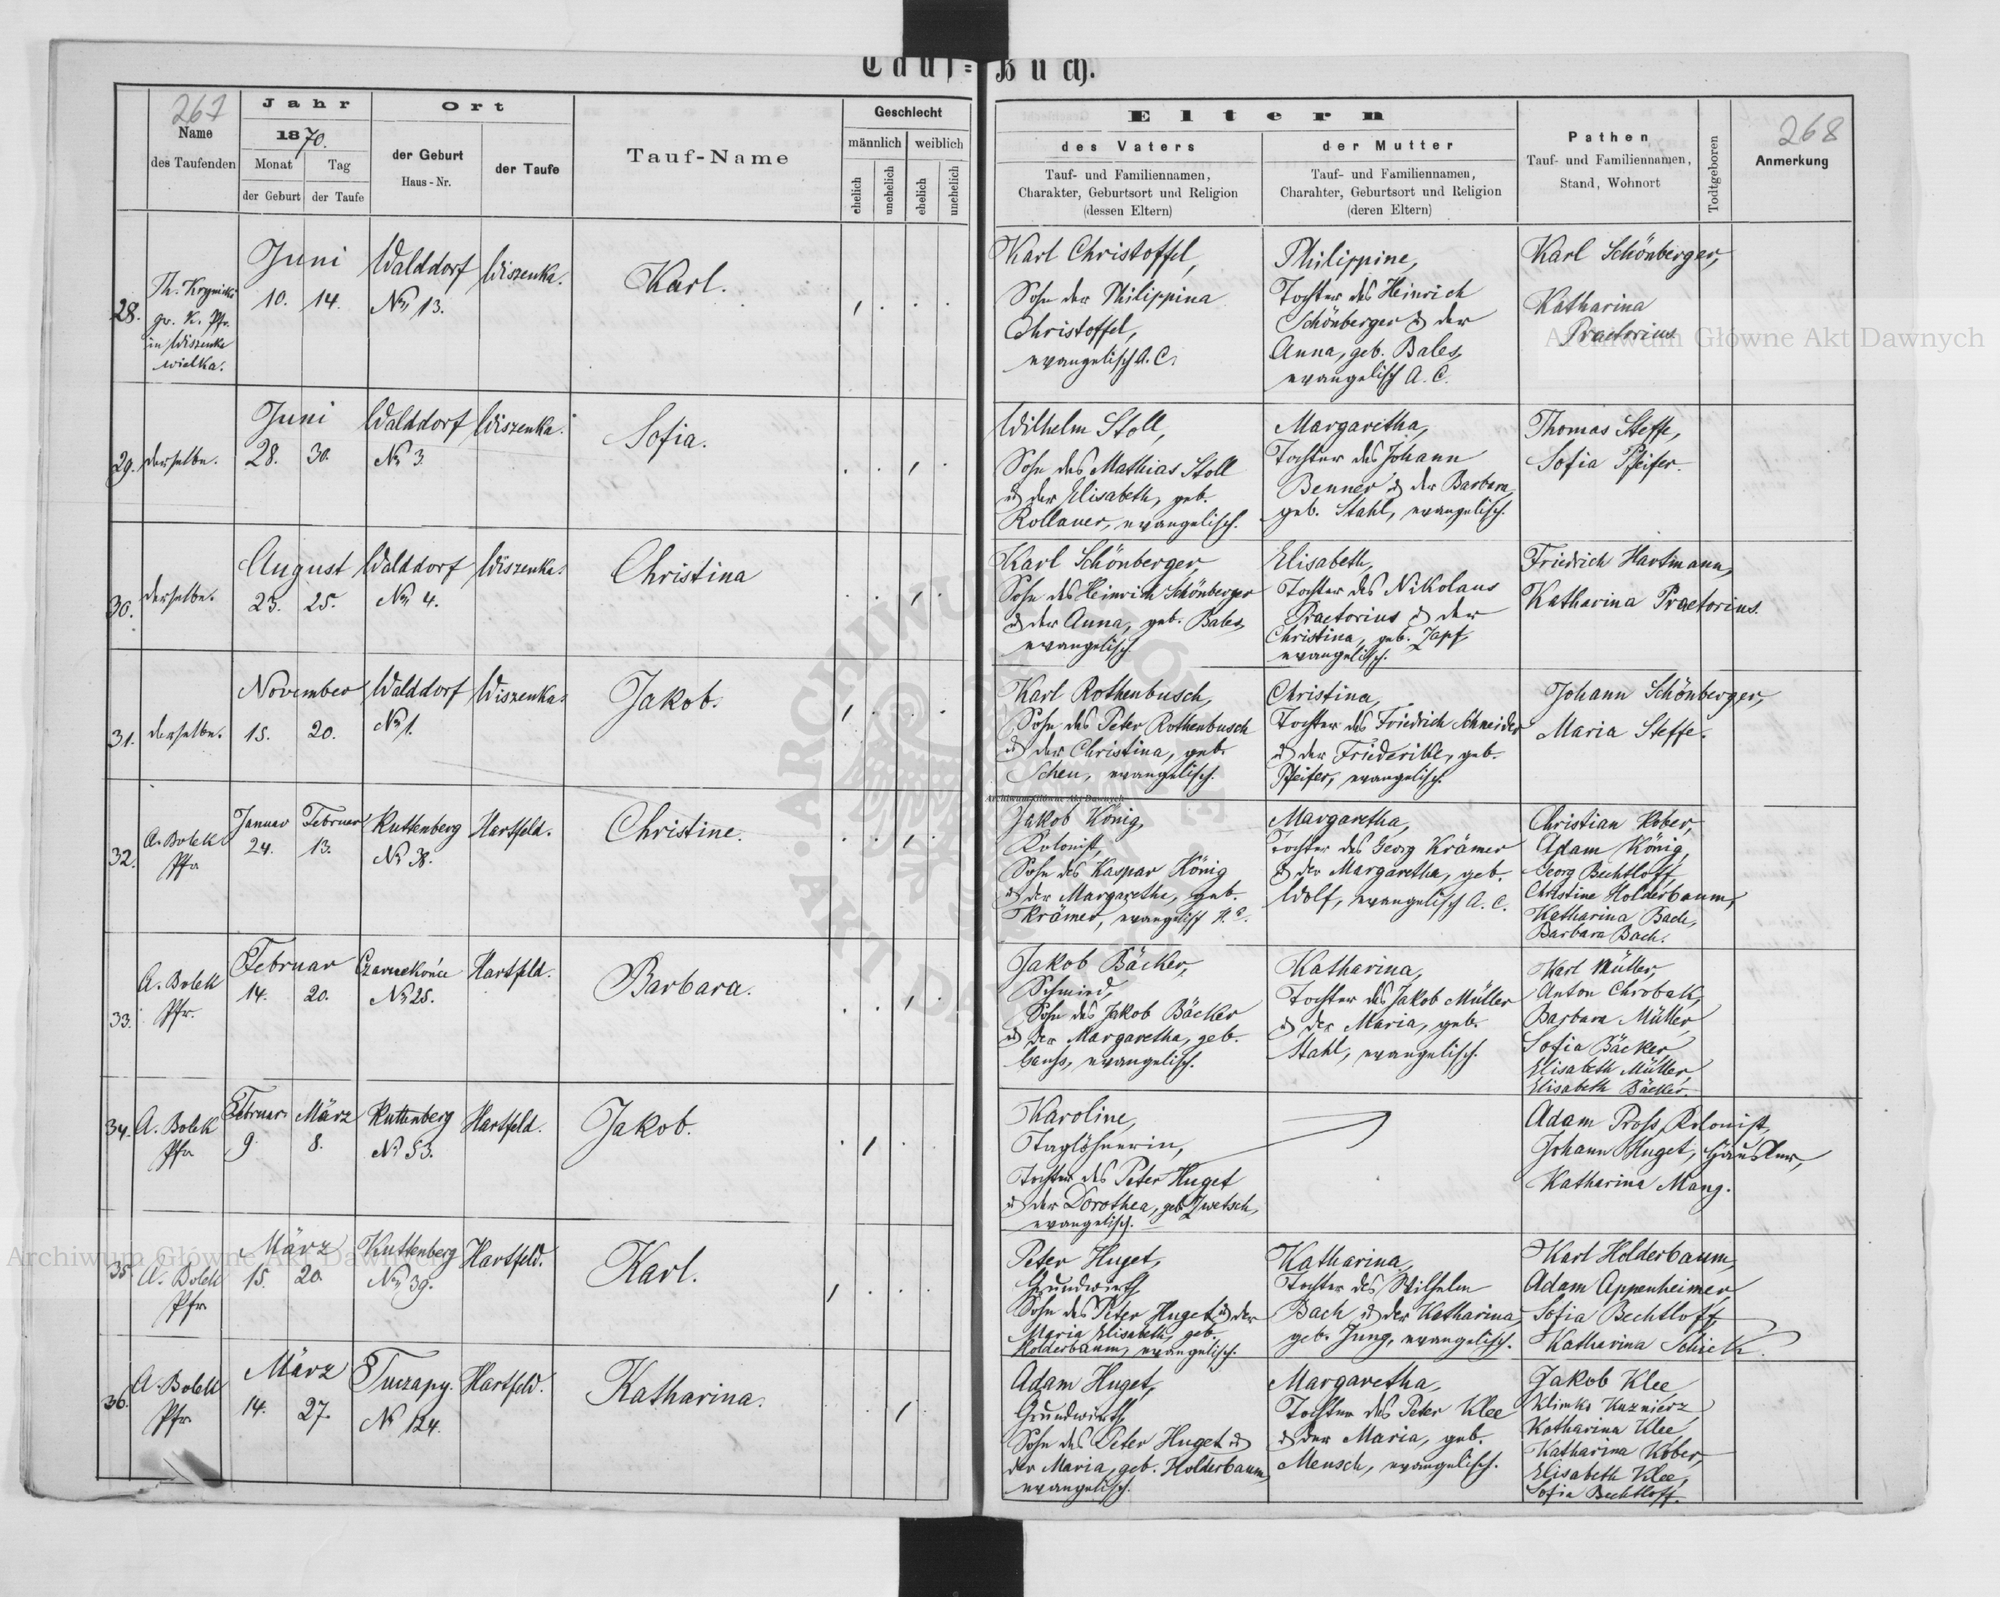 Tauf=Buch.
267
Name
des Taufenden
Jahr
1870.
Monat
Tag
der Geburt
der Taufe
Ort
der Geburt
Haus-Nr.
der Taufe
Tauf-Name
Geschlecht
männlich
weiblich
ehelich
unehelich
ehelich
unehelich
Eltern
des Vaters
Tauf- und Familiennamen,
Charakter, Geburtsort und Religion
(dessen Eltern)
der Mutter
Tauf- und Familiennamen,
Charahter, Geburtsort und Religion
(deren Eltern)
Pathen
Tauf- und Familiennamen,
Stand, Wohnort
Todtgeboren
268
Anmerkung
28.
Th. Krynicki
gr. k. Pfr.
in Wiszenka
wielka.
Juni
10. 14.
Walddorf
No 13.
Wiszenka.
Karl.
Karl Christoffel,
Sohn der Philippina
Christoffel,
evangelisch A. C.
Philippine,
Tochter des Heinrich
Schönberger u. der
Anna, geb. Bales,
evangelisch A. C.
Karl Schönberger,
Katharina
Praetorius
29.
derselbe.
Juni
28. 30.
Walddorf
No 3.
Wiszenka.
Sofia.
Wilhelm Stoll,
Sohn des Mathias Stoll
u. der Elisabeth, geb.
Kollauer, evangelisch.
Margaretha,
Tochter des Johann
Benner u. der Barbara,
geb. Stahl, evangelisch.
Thomas Steffe,
Sofia Pfeifer.
30.
derselbe.
August
23. 25.
Walddorf
No 4.
Wiszenka.
Christina
Karl Schönberger,
Sohn des Heinrich Schönberger
u. der Anna, geb. Bales,
evangelisch
Elisabeth,
Tochter des Nikolaus
Praetorius u. der
Christina, geb. Zapf,
evangelisch.
Friedrich Hartmann,
Katharina Praetorius.
31.
derselbe.
November
15. 20.
Walddorf
No 1.
Wiszenka.
Jakob.
Karl Rothenbusch,
Sohn des Peter Rothenbusch
u. der Christina, geb.
Scheu, evangelisch.
Christina,
Tochter des Friedrich Schneider
u. der Friederike, geb.
Pfeifer, evangelisch.
Johann Schönberger,
Maria Steffe.
32.
A. Bolek
Pfr
Januar Februar
24. 13.
Kuttenberg
No 38.
Hartfeld.
Christine.
Jakob König,
Kolonist,
Sohn des Kaspar König
u. der Margaretha, geb.
Krämer, evangelisch
Margaretha,
Tochter des Georg Krämer
u. der Margaretha, geb.
Wolf, evangelisch A. C.
Christian Kober,
Adam König,
Georg Bechtloff
Christine Holderbaum,
Katharina Bach,
Barbara Bach.
33.
A. Bolek
Pfr.
Februar
14. 20.
Czarnekońce
No 25.
Hartfeld.
Barbara.
Jakob Bäcker,
Schmied,
Sohn des Jakob Bäcker
u. der Margaretha, geb.
evangelisch.
Katharina,
Tochter des Jakob Müller
u. der Maria, geb.
Stahl, evangelisch.
Karl Müller,
Anton Chrobak,
Barbara Müller,
Sofia Bäcker,
Elisabeth Müller,
Elisabeth Bäcker.
34.
A. Bolek
Pfr
Februar März
9. 8.
Kuttenberg
No 53.
Hartfeld.
Jakob.
Karoline,
Taglöhnerin,
Tochter des Peter Huget
u. der Dorothea, geb. Zwetsch,
evangelisch.
Adam Pross, Kolonist,
Johann Huget, Häusler,
Katharina Mang.
35.
A. Bolek
Pfr
März
15. 20.
Kuttenberg
No 39.
Hartfeld.
Karl.
Peter Huget,
Grundwirth
Sohn des Peter Huget u. der
Maria Elisabeth, geb.
Holderbaum, evangelisch.
Katharina,
Tochter des Wilhelm
Bach u. der Katharina,
geb. Jung, evangelisch.
Karl Holderbaum,
Adam Appenheimer,
Sofia Bechtloff,
Katharina Schick.
36.
A. Bolek
Pfr
März
14. 27.
Tuczapy.
No 124.
Hartfeld.
Katharina.
Adam Huget,
Grundwirth,
Sohn des Peter Huget u.
der Maria, geb. Holderbaum,
evangelisch.
Margaretha,
Tochter des Peter Klee
u. der Maria, geb.
Mensch, evangelisch.
Jakob Klee,
Klimko Kuznierz,
Katharina Klee,
Katharina Kober,
Elisabeth Klee,
Sofia Bechtloff.
Archiwum Główne Akt Dawnych
Archiwum Główne Akt Dawnych
Archiwum Główne Akt Dawnych